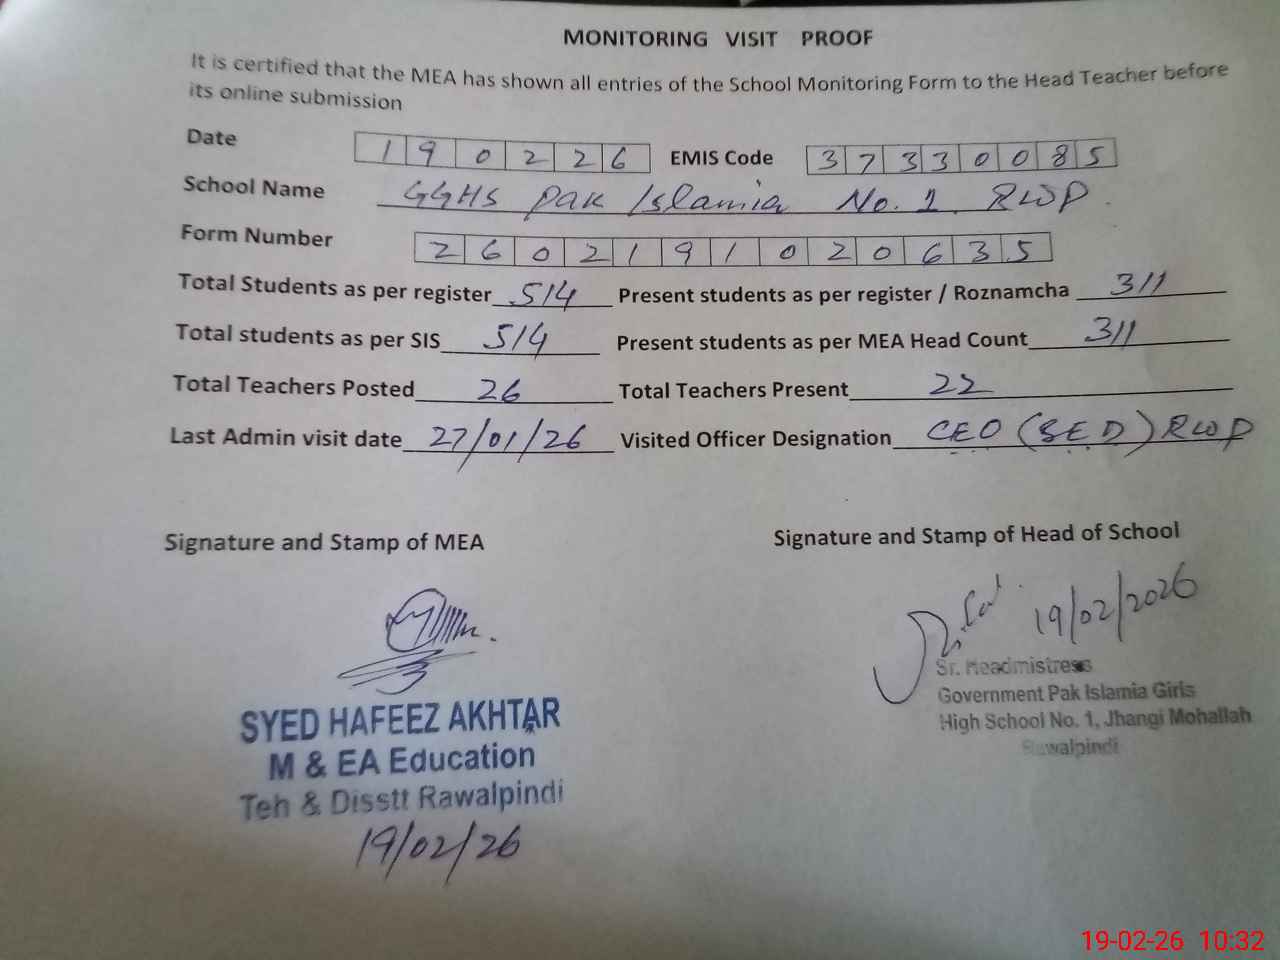 MONITORING VISIT PROOF
It is certified that the MEA has shown all entries of the School Monitoring Form to the Head Teacher before
its online submission
Date 190226 EMIS Code 37330085
School Name GGHS Pak Islamia No. 1 RWP
Form Number 2602191020635
Total Students as per register 514 Present students as per register / Roznamcha 311
Total students as per SIS 514 Present students as per MEA Head Count 311
Total Teachers Posted 26 Total Teachers Present 22
Last Admin visit date 27/01/26 Visited Officer Designation CEO (SED) RWP
Signature and Stamp of MEA Signature and Stamp of Head of School
19/02/2026
Sr. Headmistress
Government Pak Islamia Girls
High School No. 1, Jhangi Mohallah
Rawalpindi
SYED HAFEEZ AKHTAR
M & EA Education
Teh & Disstt Rawalpindi
19/02/26
19-02-26 10:32